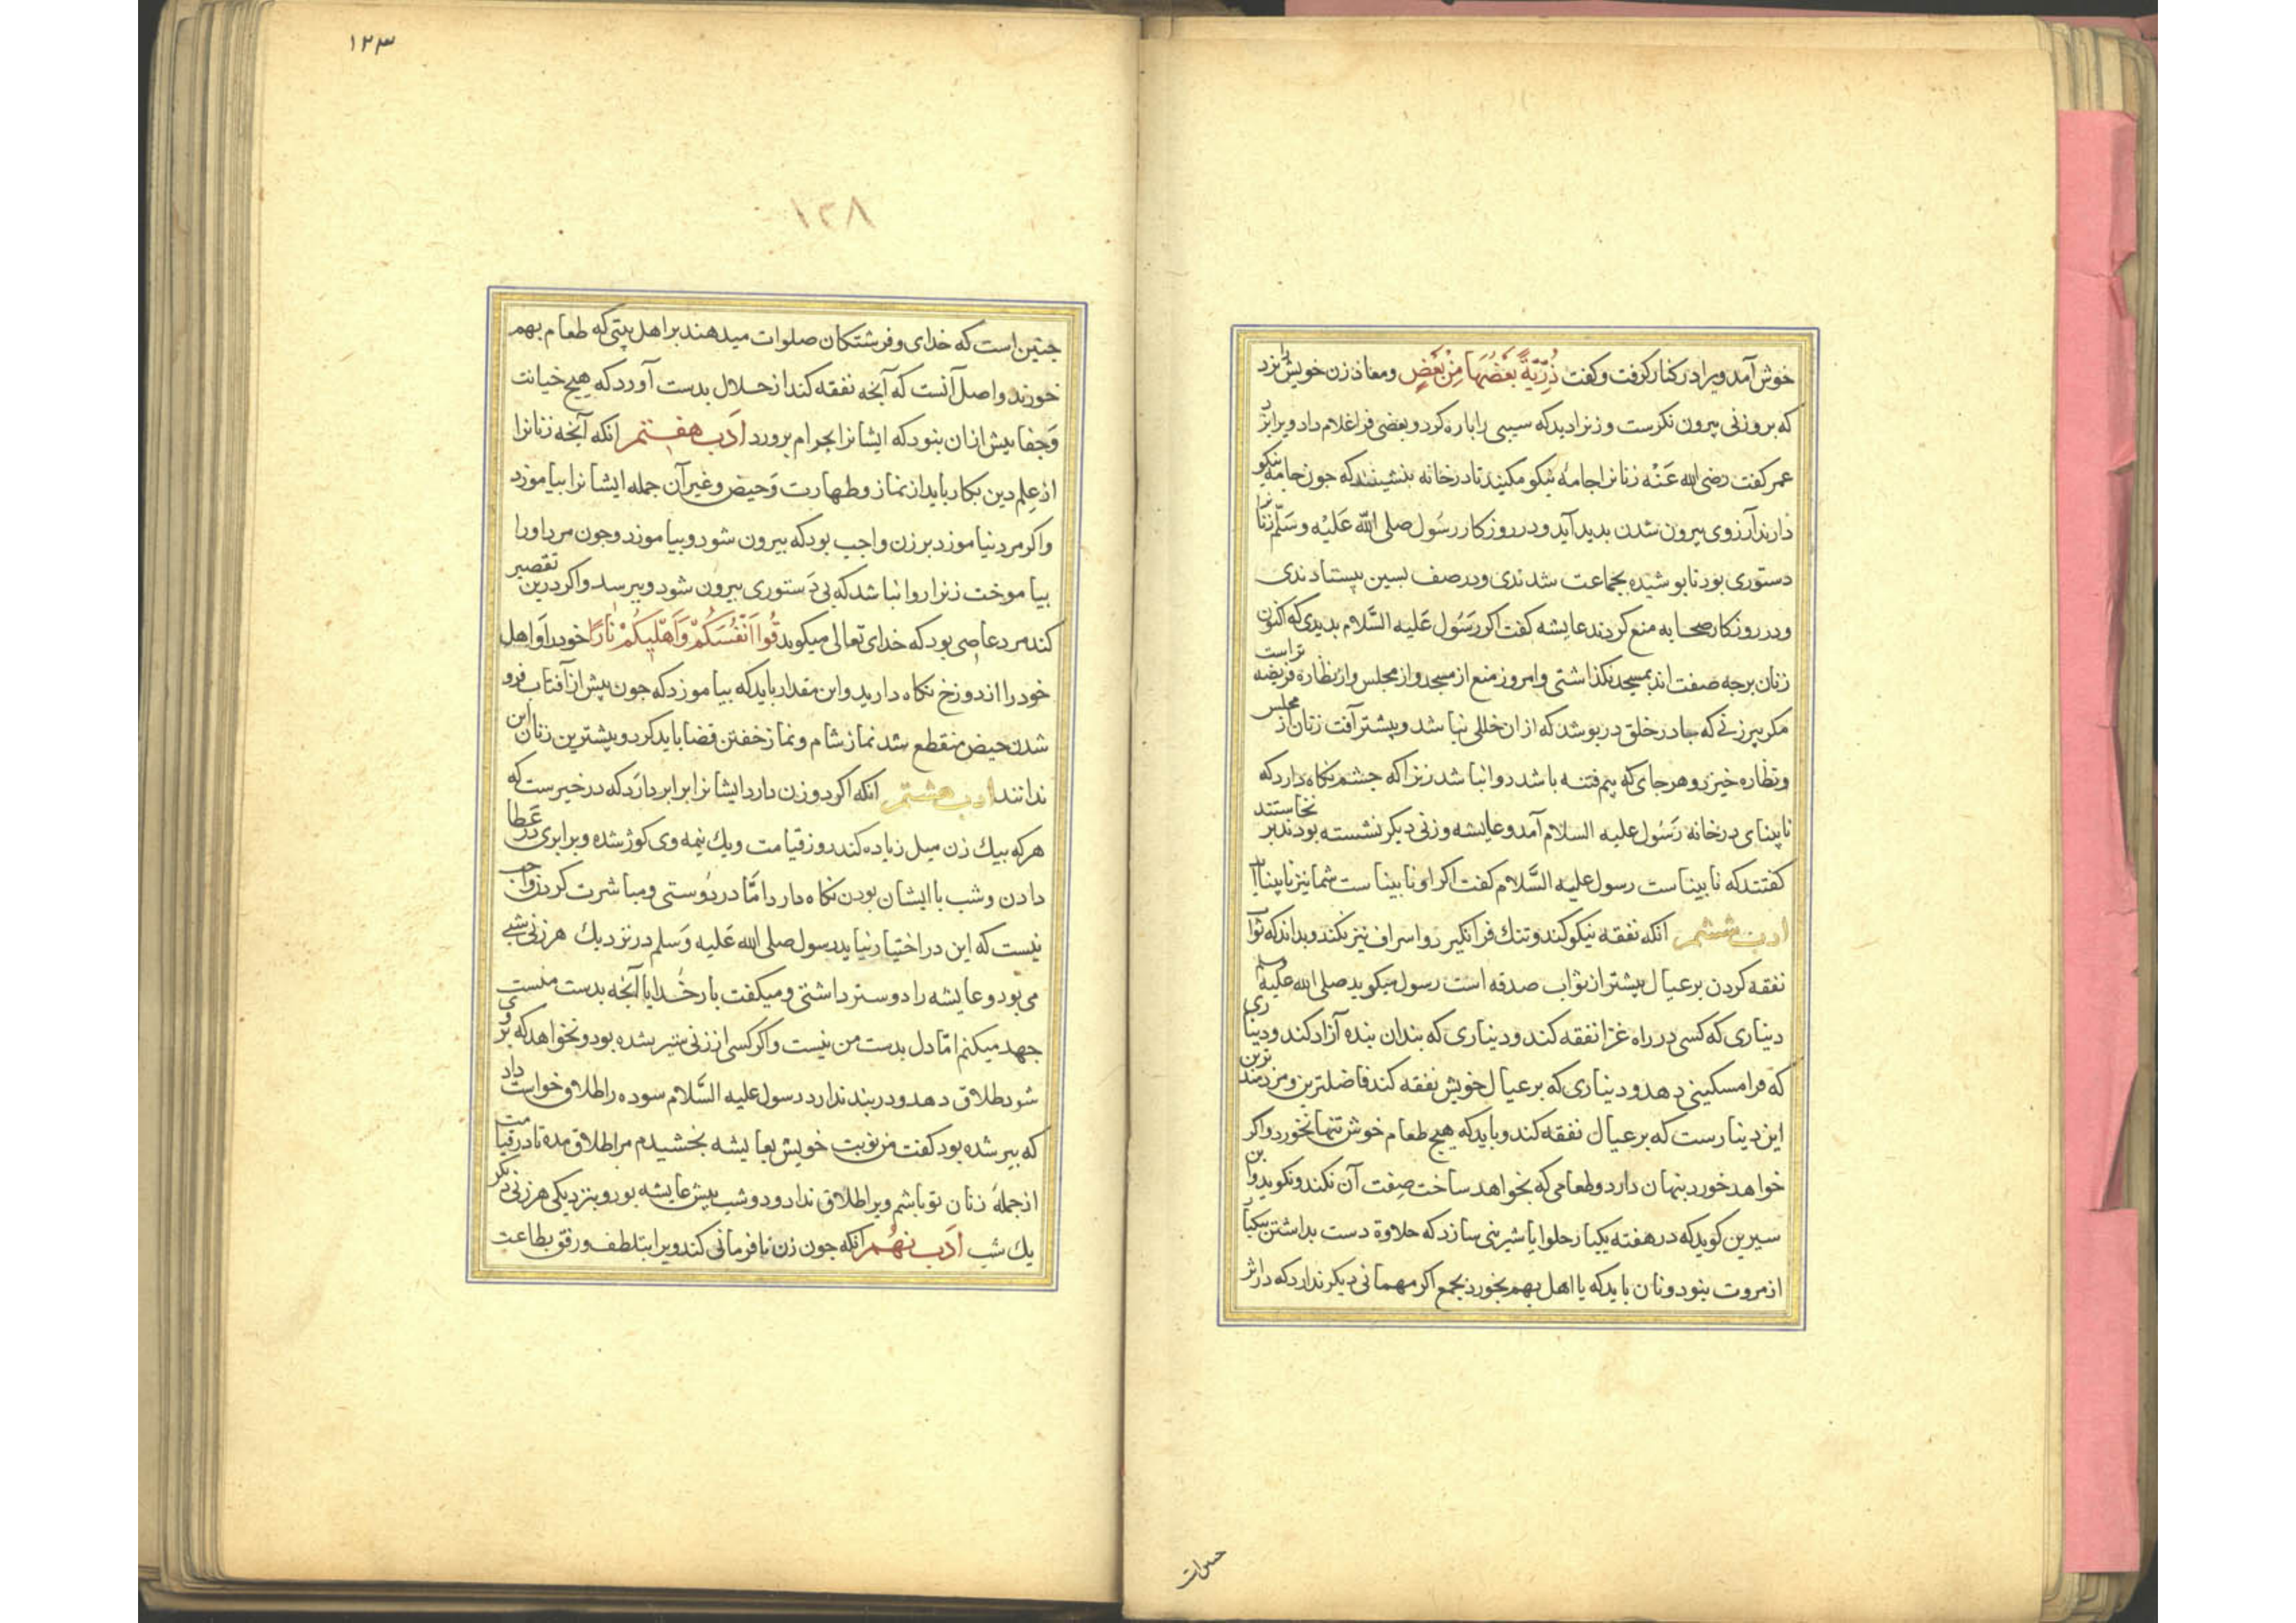 خوش آمد ویرا در کنار کرفت و کفت ذُرِّیَّةً بَعْضُهَا مِنْ بَعْضٍ و معاذ زن خویش را بزد
که بروزنی بیرون نکرست و زنرا دید که سیبی را باره کرد و بعضی فرا غلام داد ویرا بزد
عمر کفت رضی الله عَنْه زنانرا جامهٔ نیکو مکنید تا در خانه بنشینند که جون جامه نیکو
دارند آرزوی بیرون شدن بدید آید و در روزکار رسُول صلی الله عَلَیْه وسَلّم زنانرا
دستوری بود تا بوشیده بجماعت شدندی و در صف بسین بیستادندی
و در روزکار صحابه منع کردند عایشه کفت اکر رَسُول عَلیه السَّلام بدیدی که اکنون
زنان برجه صفت اند بمسجد نکذاشتی و امروز منع از مسجد و از مجلس و از نظاره فریضه تر است
مکر بیرزنی که جادر خلق در بوشد که از ان خللی نباشد و بیشتر آفت زنان از مجلس
و نظاره خیزد و هر جای که بیم فتنه باشد روا نباشد زنرا که جشم نکاه دارد که
نابینای در خانه رَسُول علیه السلام آمد و عایشه و زنی دیکر نشسته بودند بر نخاستند
کفتند که نابیناست رسول علیه السَّلام کفت اکر او نابیناست شما نیز نابینااید
ادب ششم انکه نفقه نیکو کند و تنک فرا نکیرد و اسراف نیز نکند و بداند که ثواب
نفقه کردن بر عیال بیشتر از ثواب صدقه است رسول میکوید صلی الله علیه وسلم
دیناری که کسی در راه غزا نفقه کند و دیناری که بدان بنده آزاد کند و دیناری
که فرا مسکینی دهد و دیناری که بر عیال خویش نفقه کند فاضلترین و مزدمندترین
این دینارست که بر عیال نفقه کند و باید که هیج طعام خوش تنها نخورد و اکر
خواهد خورد بنهان دارد و طعامی که بخواهد ساخت صِفت آن نکند و نکوید و ابن
سیرین کوید که در هفته یکبار حلوا یا شیرینی سازد که حلاوة دست بداشتن بیکبار
از مروت بنود و نان باید که با اهل بهم بخورد بجمع اکر مهمانی دیکر ندارد که در اثر
حسرات
۱۲۳
۱۲۸
جنین است که خدای و فرشتکان صلوات میدهند بر اهل بیتی که طعام بهم
خورند و اصل آنست که آنجه نفقه کند از حلال بدست آورد که هیج خیانت
وَجفا بیش از ان بنود که ایشانرا بحرام برورد ادَب هفتم انکه آنجه زنانرا
از عِلم دین بکار باید از نماز و طهارت وَحیض و غیر آن جمله ایشانرا بیاموزد
و اکر مرد نیاموزد بر زن واجب بود که بیرون شود و بیاموزد و جون مرد اورا
بیاموخت زنرا روا نباشد که بی دَستوری بیرون شود و ببرسد و اکر درین تقصیر
کند مرد عاصی بود که خدای تعالی میکوید قُوا اَنْفُسَکُمْ وَاَهْلِیکُمْ نَارًا خود را وَ اهل
خود را از دوزخ نکاه دارید و این مقدار باید که بیاموزد که جون بیش از آفتاب فرو
شدن حیض منقطع شد نماز شام و نماز خفتن قضا باید کرد و بیشترین زنان این
ندانند ادب هشتم انکه اکر دو زن دارد ایشانرا برابر دارد که در خبرست که
هر که بیك زن میل زیاده کند روز قیامت و یك نیمه وی کوژ شده و برابری در عَطا
دادن و شب با ایشان بودن نکاه دارد امّا در دُوستی و مباشرت کردن واجب
نیست که این در اختیار نیاید رسول صلی الله عَلیه وَسلم در نزدیك هر زنی شبی
می بود و عایشه را دوستر داشتی و میکفت بار خُدایا آنجه بدست منست
جهد میکنم امّا دل بدست من نیست و اکر کسی از زنی سیر شده بود و نخواهد که بر وی
شود طلاق دهد و در بند ندارد رسول علیه السَّلام سوده را طلاق خواست داد
که بیر شده بود کفت من نوبت خویش بعایشه بخشیدم مرا طلاق مده تا در قیامت
از جملهٔ زنان تو باشم ویرا طلاق نداد و دو شب بیش عایشه بود و بنزدیکی هر زنی دیکر
یك شب ادَب نهُم انکه جون زن نافرمانی کند ویرا بتلطف و رفق بطاعت